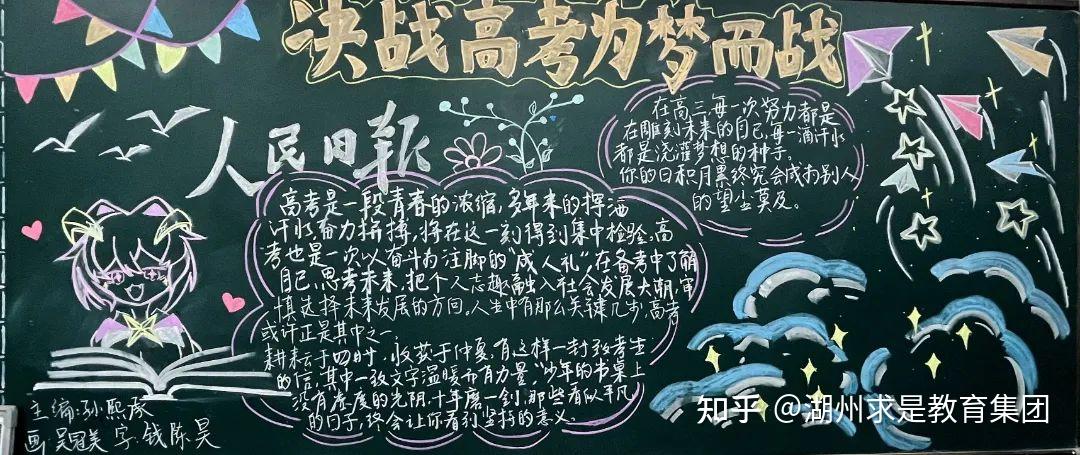 决战高考为梦而战
人民日报
在高三每一次努力都是
在雕刻未来的自己,每一滴汗水
都是浇灌梦想的种子。
你的日积月累终究会成为别人
的望尘莫及。
高考是一段青春的浓缩,多年来的挥洒
汗水奋力拼搏,将在这一刻得到集中检验。高
考也是一次以奋斗为注脚的“成人礼”,在备考中了解
自己、思考未来,把个人志趣融入社会发展大潮,审
慎选择未来发展的方向。人生中有那么关键几步,高考
或许正是其中之一
耕耘于四时,收获于仲夏,有这样一封致考生
的信,其中一段文字温暖而有力量,“少年的书桌上
没有虚度的光阴,十年磨一剑,那些看似平凡
的日子,终会让你看到坚持的意义。
主编:孙熙承
画:吴冠美 字:钱陈昊
知乎 @湖州求是教育集团